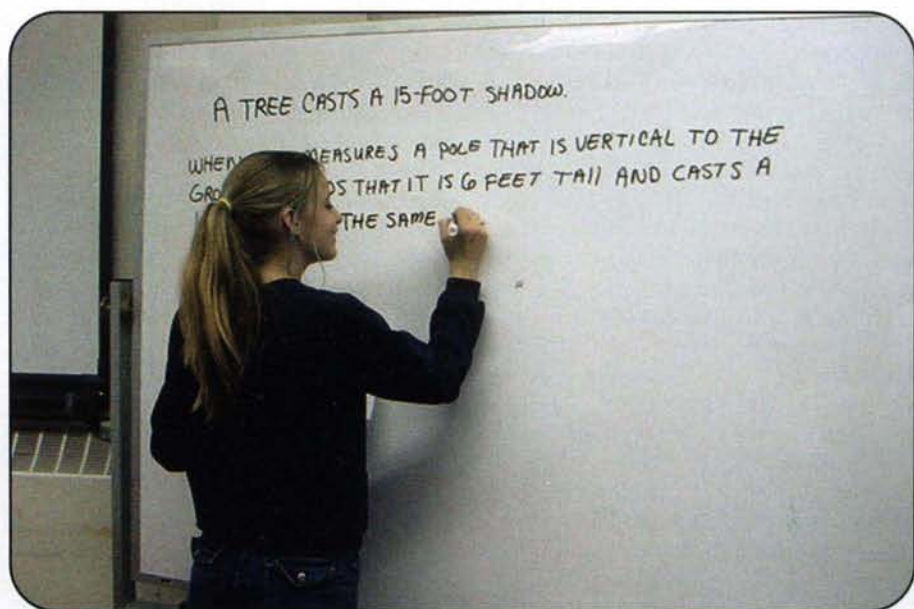 A TREE CASTS A 15-FOOT SHADOW.
WHEN MEASURES A POLE THAT IS VERTICAL TO THE
THAT IT IS 6 FEET TAll AND CASTS A
THE SAME